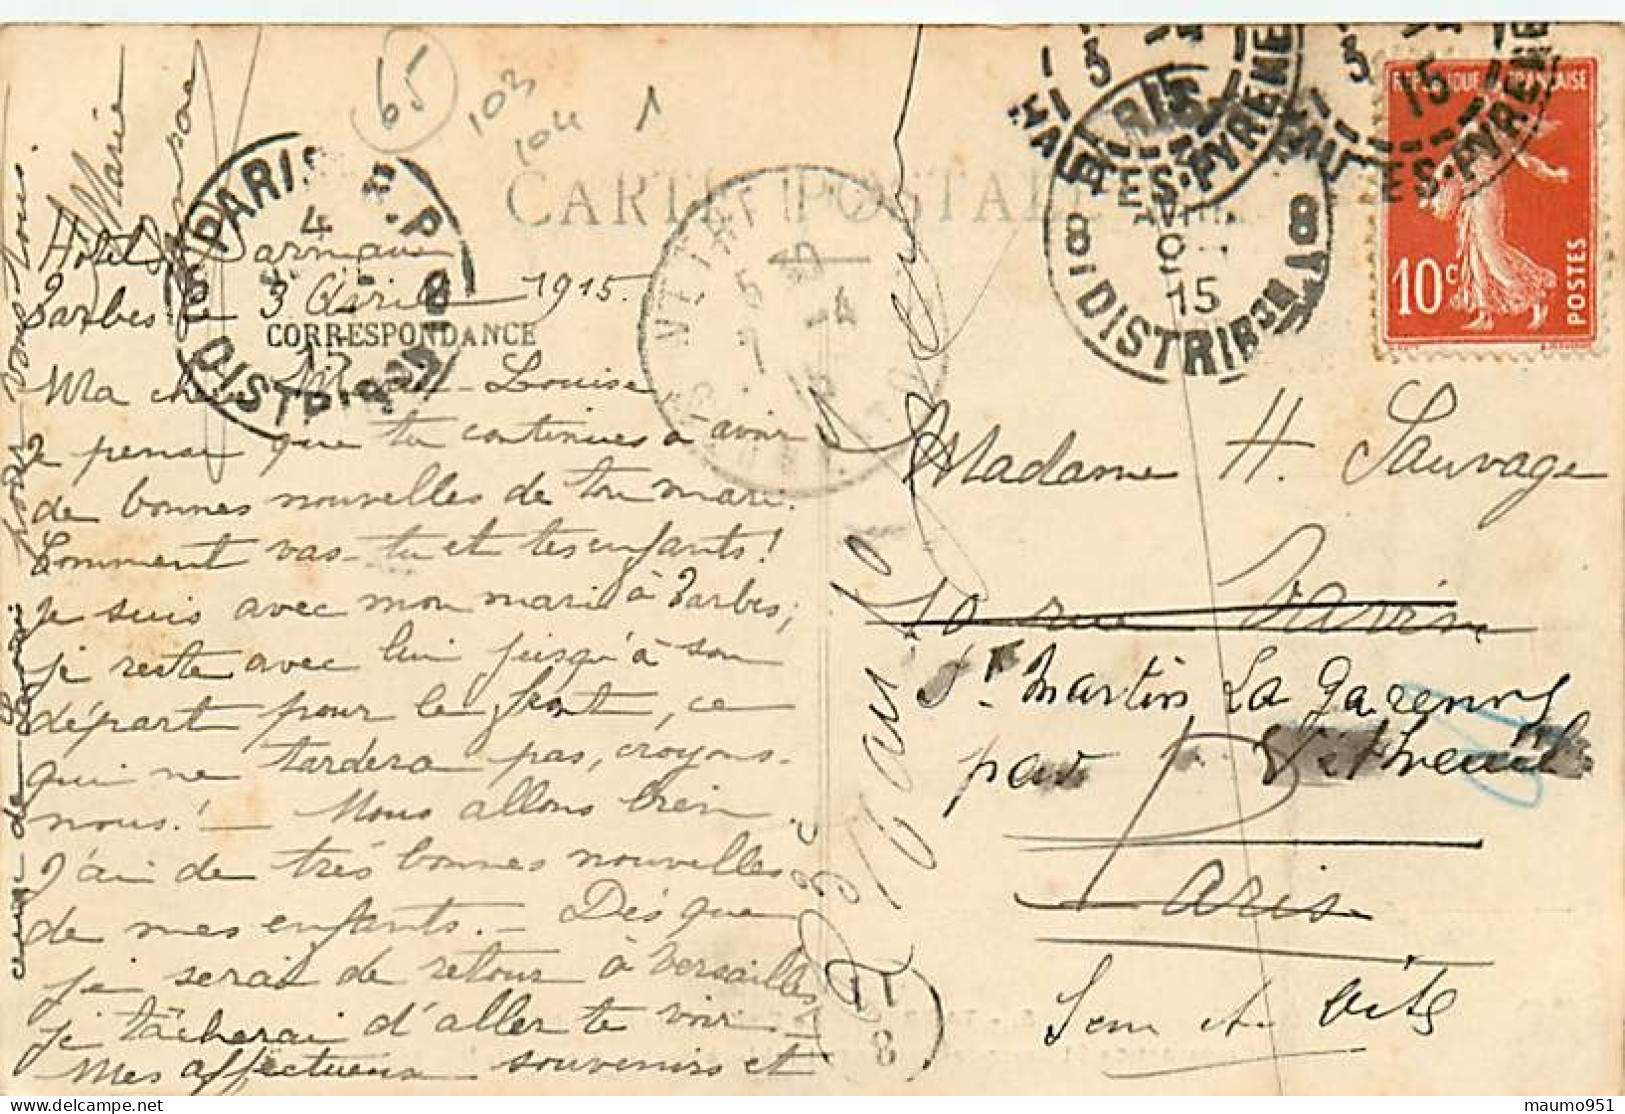 65
103
104
1
CARTE POSTALE
CORRESPONDANCE
PARIS
4
DISTRIBON
8
PARIS
AVRIL
15
8
DISTRIBON
HAUTES-PYRENEES
3
15
RÉPUBLIQUE FRANÇAISE
10c
POSTES
Hôtel Darmau
Tarbes le 3 Avril 1915.
Ma chère Marie-Louise
Je pense que tu continues à avoir
de bonnes nouvelles de ton mari.
Comment vas-tu et tes enfants!
Je suis avec mon mari à Tarbes;
je reste avec lui jusqu'à son
départ pour le front, ce
qui ne tardera pas, croyons-
nous! — Nous allons bien.
J'ai de très bonnes nouvelles
de mes enfants. — Dès que
je serai de retour à Versailles
je tâcherai d'aller te voir. —
Mes affectueux souvenirs et
ceux de
pour vous tous.
Marie
Madame H. Sauvage
10 rue Vavin
Paris
St Martin La Garenne
par Vétheuil
Seine et Oise
11
8
maumo951